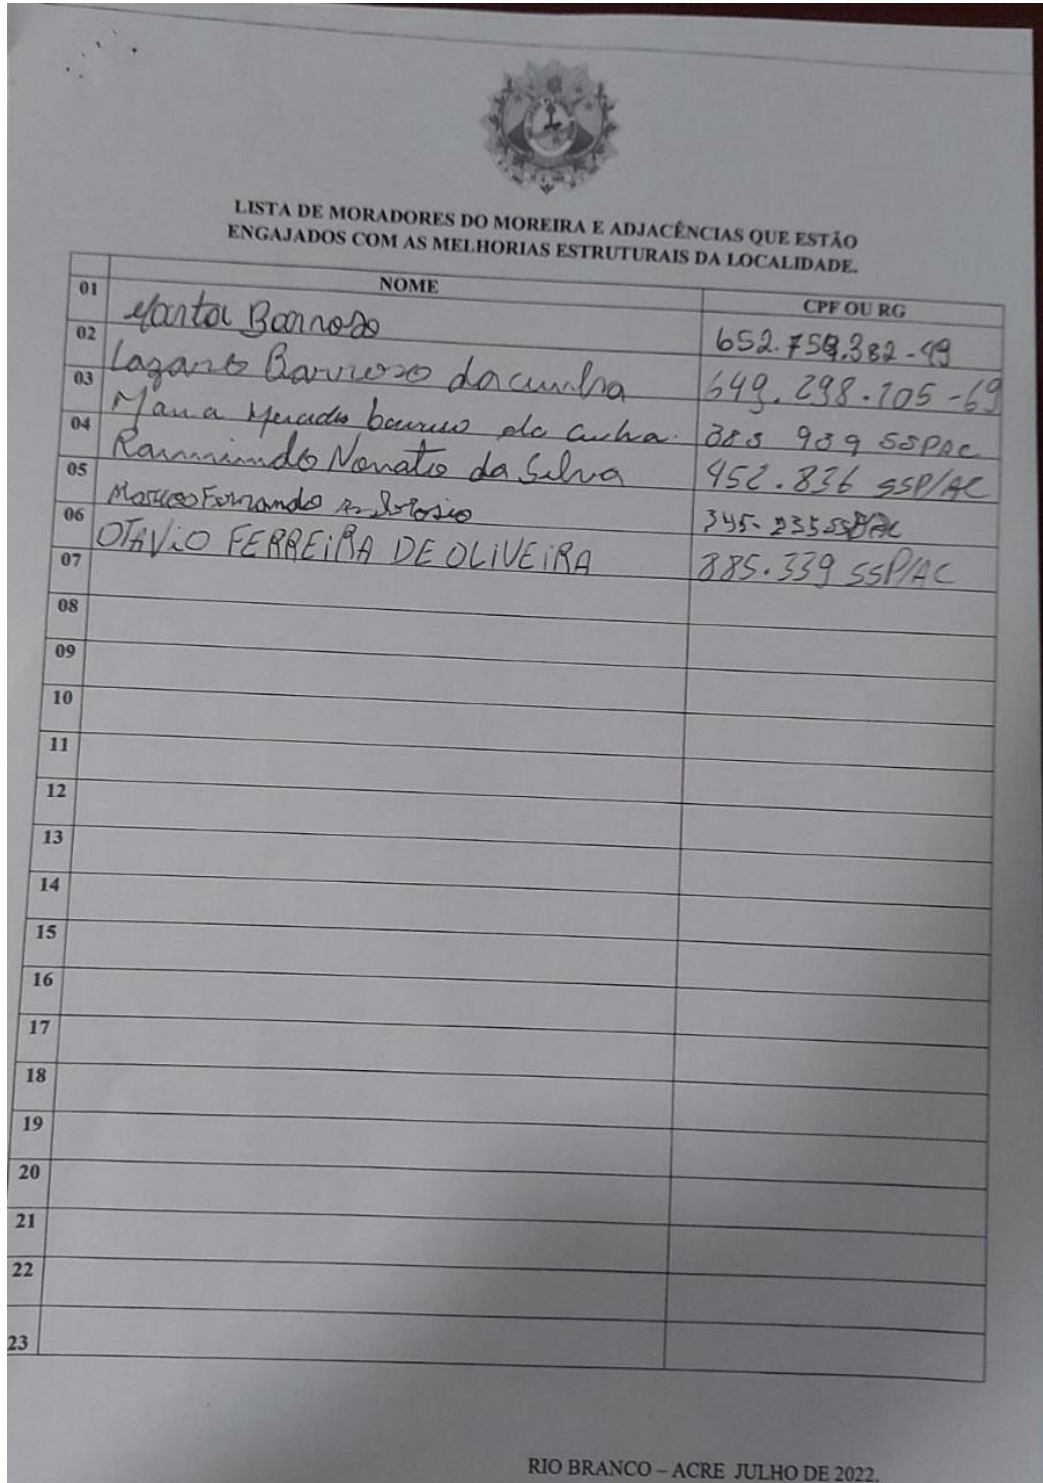 LISTA DE MORADORES DO MOREIRA E ADJACÊNCIAS QUE ESTÃO
ENGAJADOS COM AS MELHORIAS ESTRUTURAIS DA LOCALIDADE.
NOME CPF OU RG
01 Marta Barroso 652.759.382-49
02 Lazaro Barroso da cunha 649.298.105-69
03 Maria barroso da cunha SSPAC
04 Raimundo Nonato da Silva 452.836 SSP/AC
05 Marcos Fernando 345.235 SSP/AC
06 OTAViO FERREiRA DE OLiVEiRA 885.339 SSP/AC
07
08
09
10
11
12
13
14
15
16
17
18
19
20
21
22
23
RIO BRANCO – ACRE JULHO DE 2022.